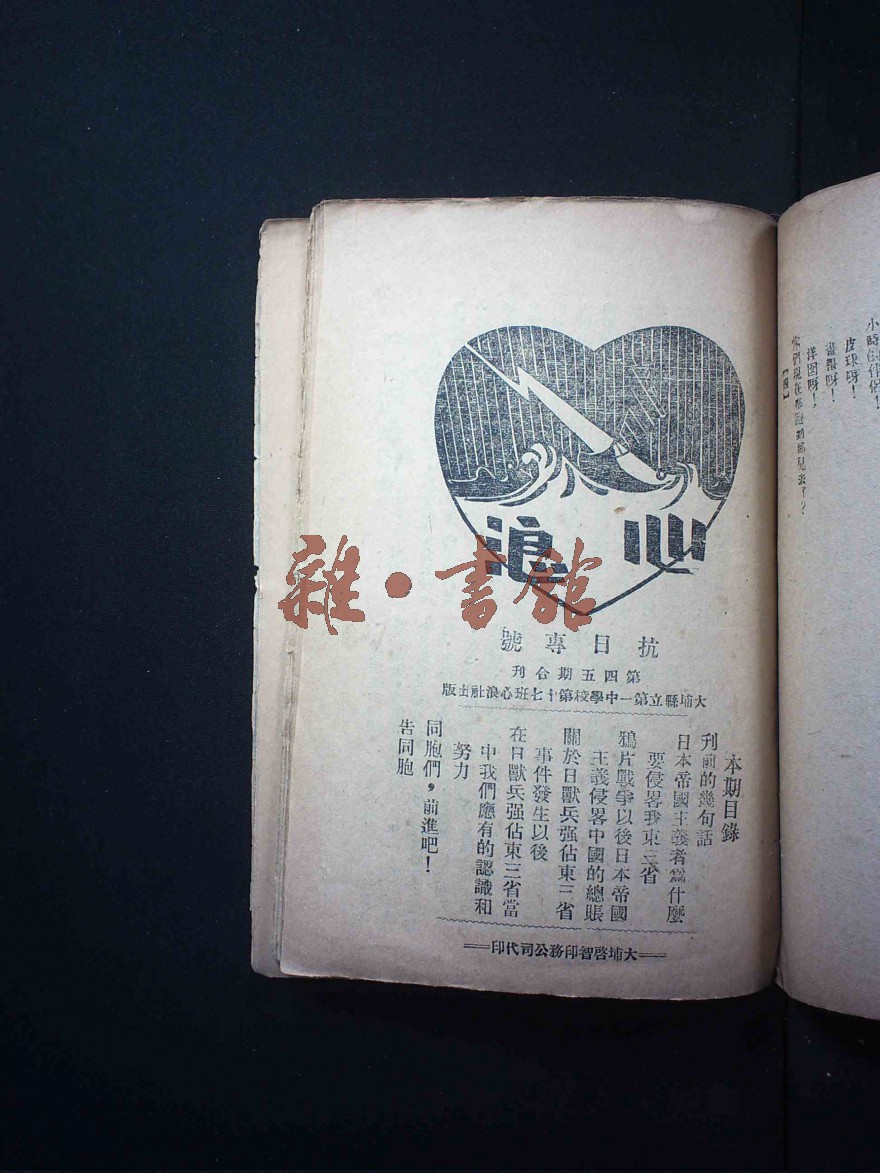 小時
皮球呀！
畫報呀！
洋囡呀！
你們現在
心浪
雜·書館
抗日專號
第四五期合刊
大埔縣立第一中學校第十七班心浪社出版
本期目錄
刋前的幾句話
日本帝國主義者爲什麼
要侵畧我東三省
鴉片戰爭以後日本帝國
主義侵畧中國的總賬
關於日獸兵强佔東三省
事件發生以後
在日獸兵强佔東三省當
中我們應有的認識和
努力
同胞們，前進吧！
告同胞
大埔啓智印務公司代印